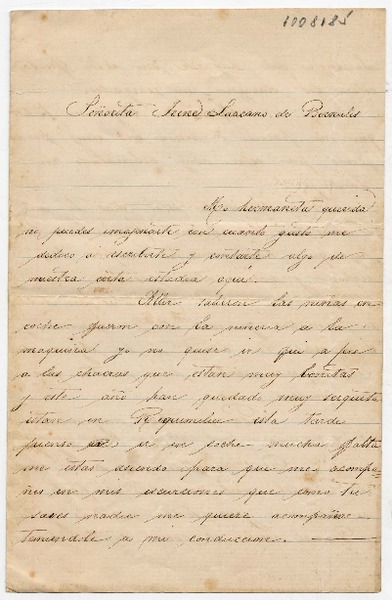 1008185
Señorita Irene Lazcano de Bernales
Mi hermanita querida
no puedes imajinarte con cuanto gusto me
dedico a escribirte y contarte algo de
nuestra corta estadia aqui.
Aller salieron las niñas en
coche fueron con la a la
maquina yo no quise ir fui a pie
a las chacras que estan muy bonitas
y este año han quedado muy
estan en esta tarde
pienso ir en coche mucha falta
me estas asiendo para que me acompa-
ñes en mis escursiones que como tu
saves nadie me quiere acompañar
temiendole a mi conduccion.